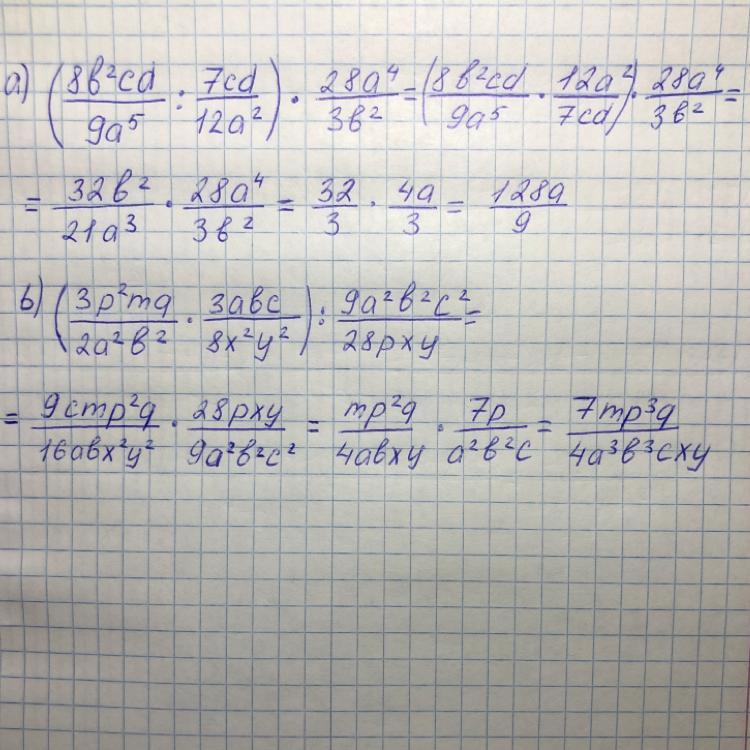 а) (8b²cd/9a⁵ : 7cd/12a²) · 28a⁴/3b² = (8b²cd/9a⁵ · 12a²/7cd) · 28a⁴/3b² =
= 32b²/21a³ · 28a⁴/3b² = 32/3 · 4a/3 = 128a/9
b) (3p²mq/2a²b² · 3abc/8x²y²) : 9a²b²c²/28pxy =
= 9cmp²q/16abx²y² · 28pxy/9a²b²c² = mp²q/4abxy · 7p/a²b²c = 7mp³q/4a³b³cxy